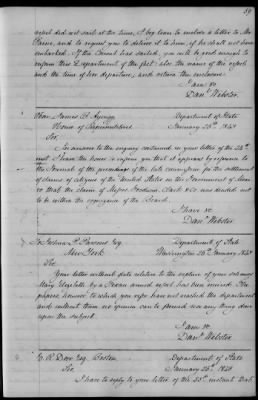 59
vessel did not sail at the time, I beg leave to enclose a letter to Mr
and to request you to deliver it to him, if he shall not have
embarked. If the Consul has sailed, you will be good enough to
inform this Department of the fact: also the name of the vessel
and the time of her departure, and return the enclosure.
I am &c
Danl Webster.
Hon. James
Department of State
House of Representatives
January 25th 1843
Sir,
In answer to the enquiry contained in your letter of the 24th
inst I have the honor to inform you that it appears by reference to
the Journal of the proceedings of the late commission for the settlement
of claims of citizens of the United States on the Government of Mexi-
co that the claim of Messrs Clark & Co was decided not
to be within the cognizance of the Board.
I have &c
Danl Webster.
Joshua P. Parsons Esq.
Department of State
New York
Washington 25th January 1843
Sir:
Your letter without date relative to the capture of your schooner
Mary Elizabeth by a Texan armed vessel has been received. The
papers however to which you refer have not reached the department
and without them no opinion can be formed nor any thing done
upon the subject.
I am &c
Danl Webster.
E. R. Dorr Esq. Boston
Department of State
Sir,
January 26th 1843
I have to reply to your letter of the 23d instant that